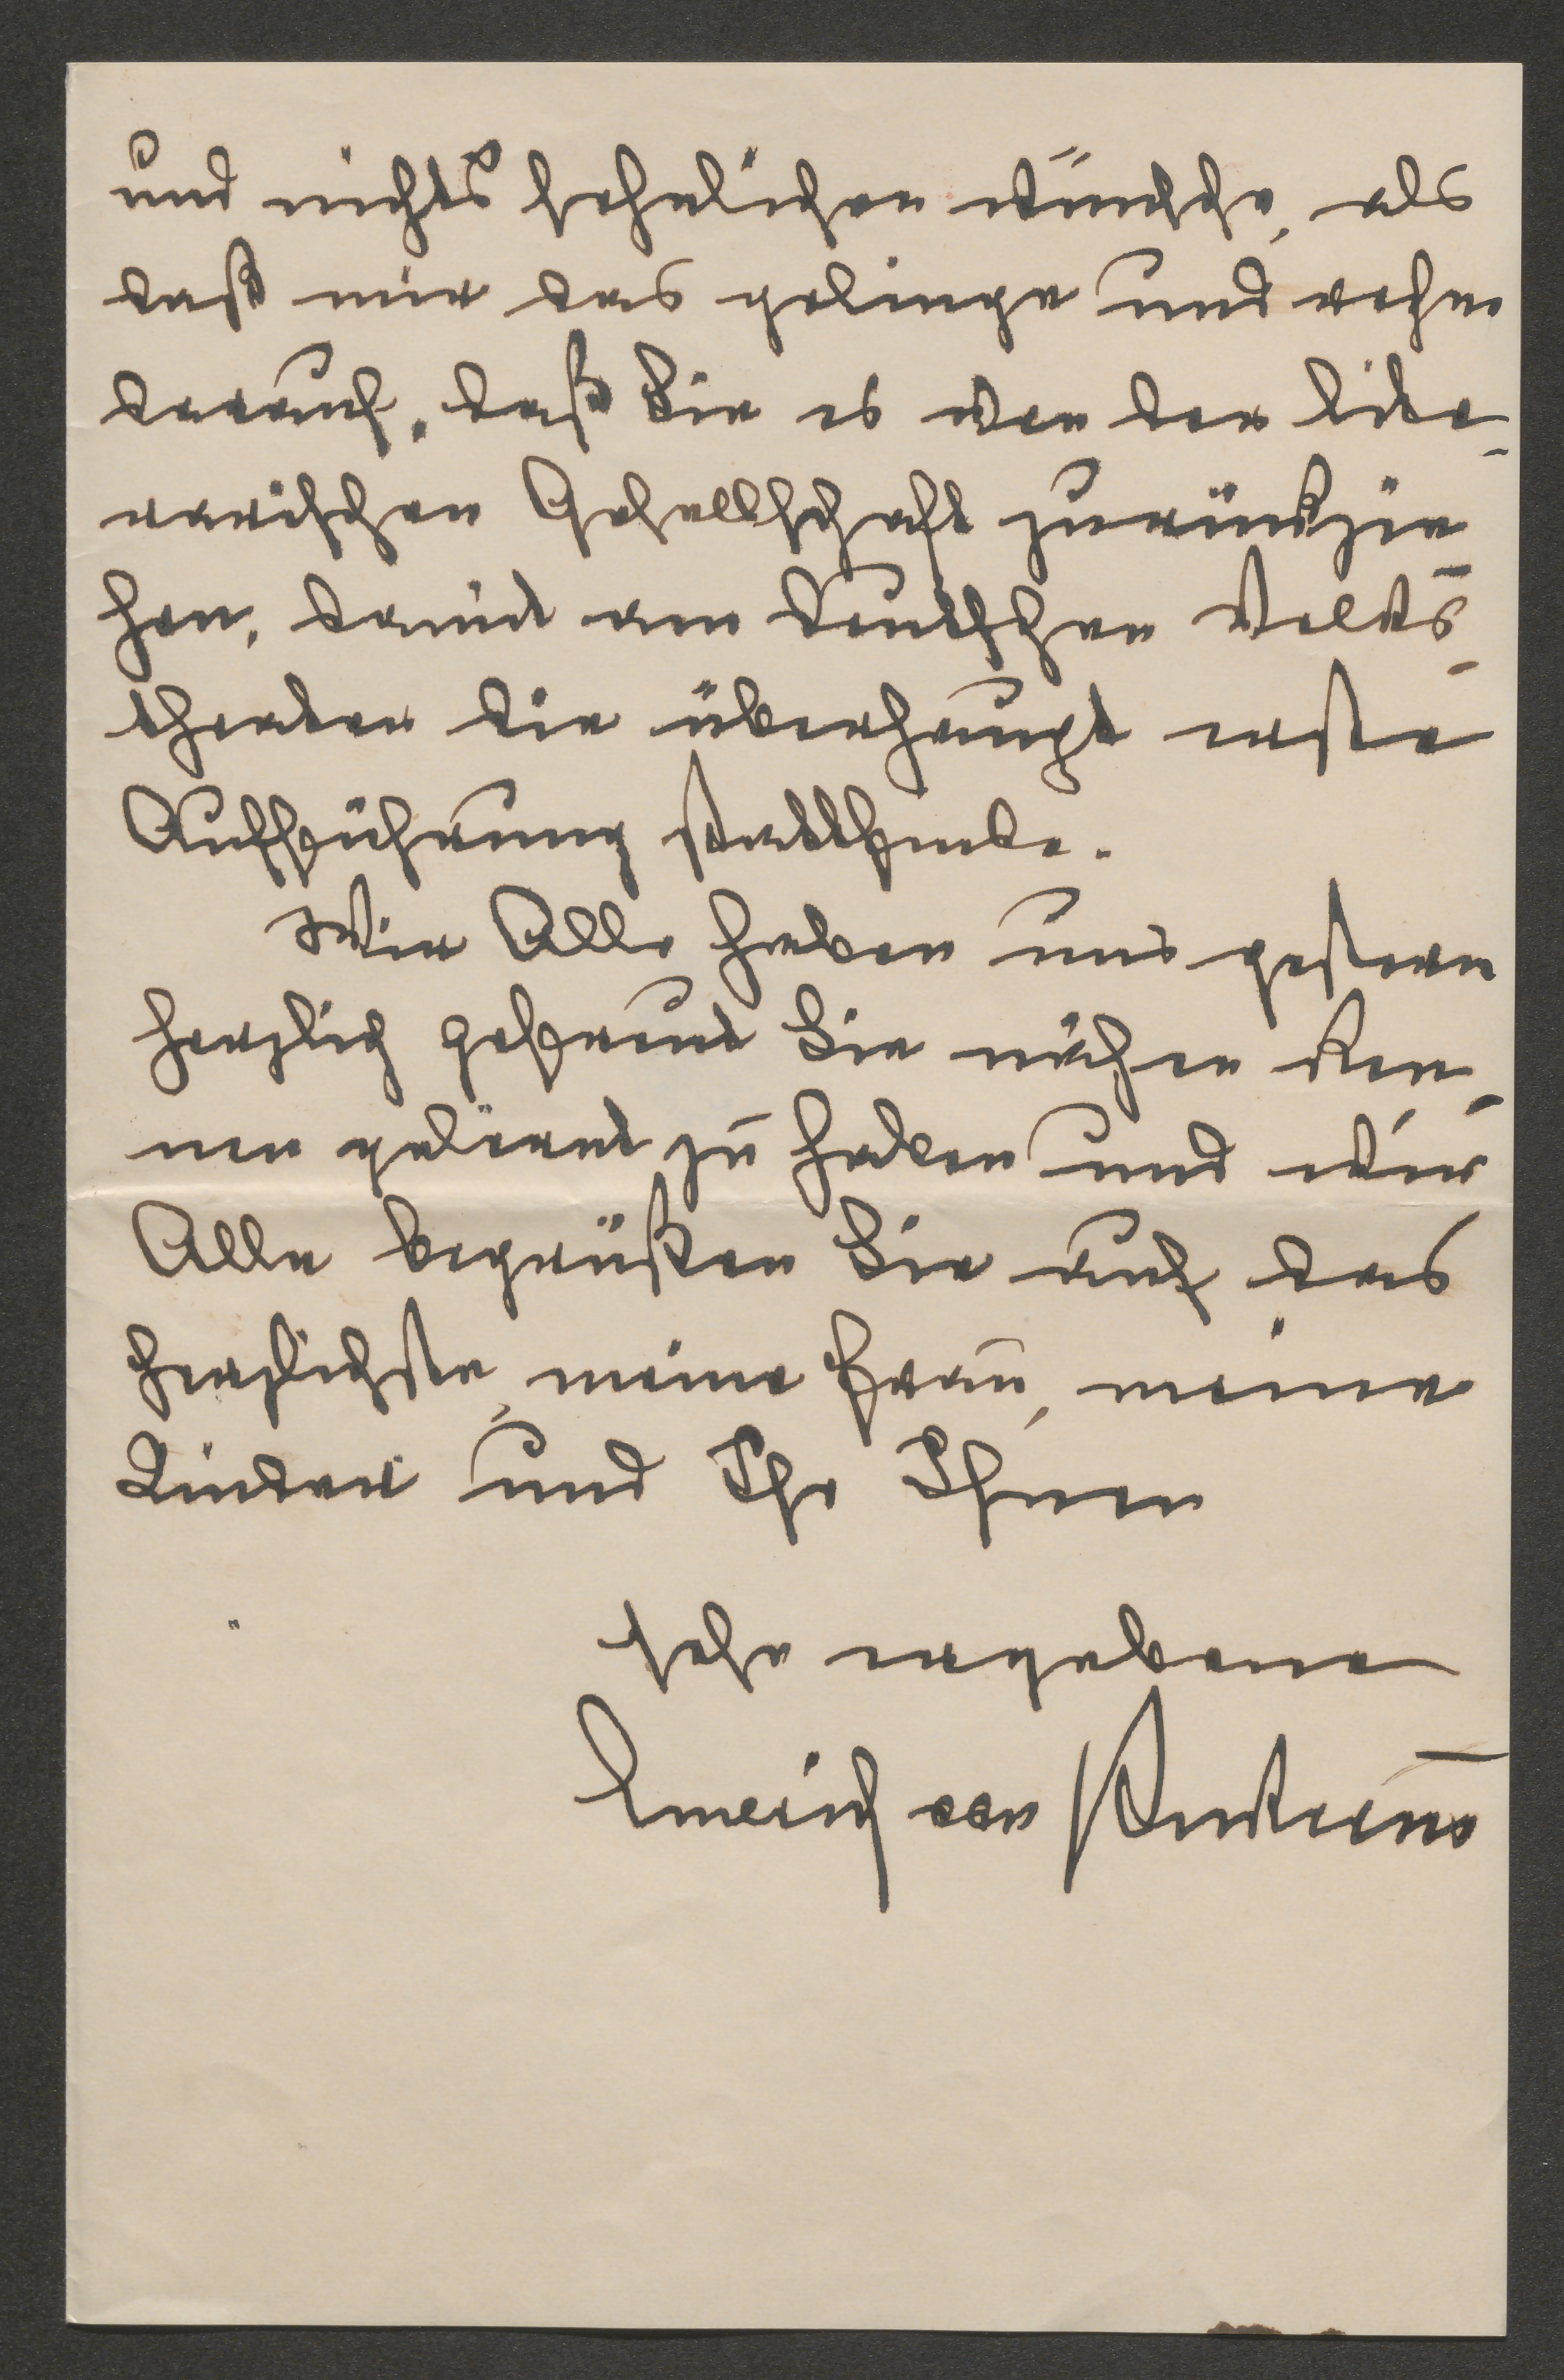 und nichts sehnlicher wünsche, als
daß mir das gelinge und rechne
darauf, daß Sie es von der lite-
rarischen Gesellschaft zurückzie-
hen, damit am Deutschen Volks-
theater die überhaupt erste
Aufführung stattfinde.
Wir Alle haben uns gestern
herzlich gefreut Sie näher ken-
nen gelernt zu haben und wir
Alle begrüßen Sie auf das
herzlichste, meine Frau, meine
Kinder und Ihr Ihnen
sehr ergebener
Emerich von Bukovics